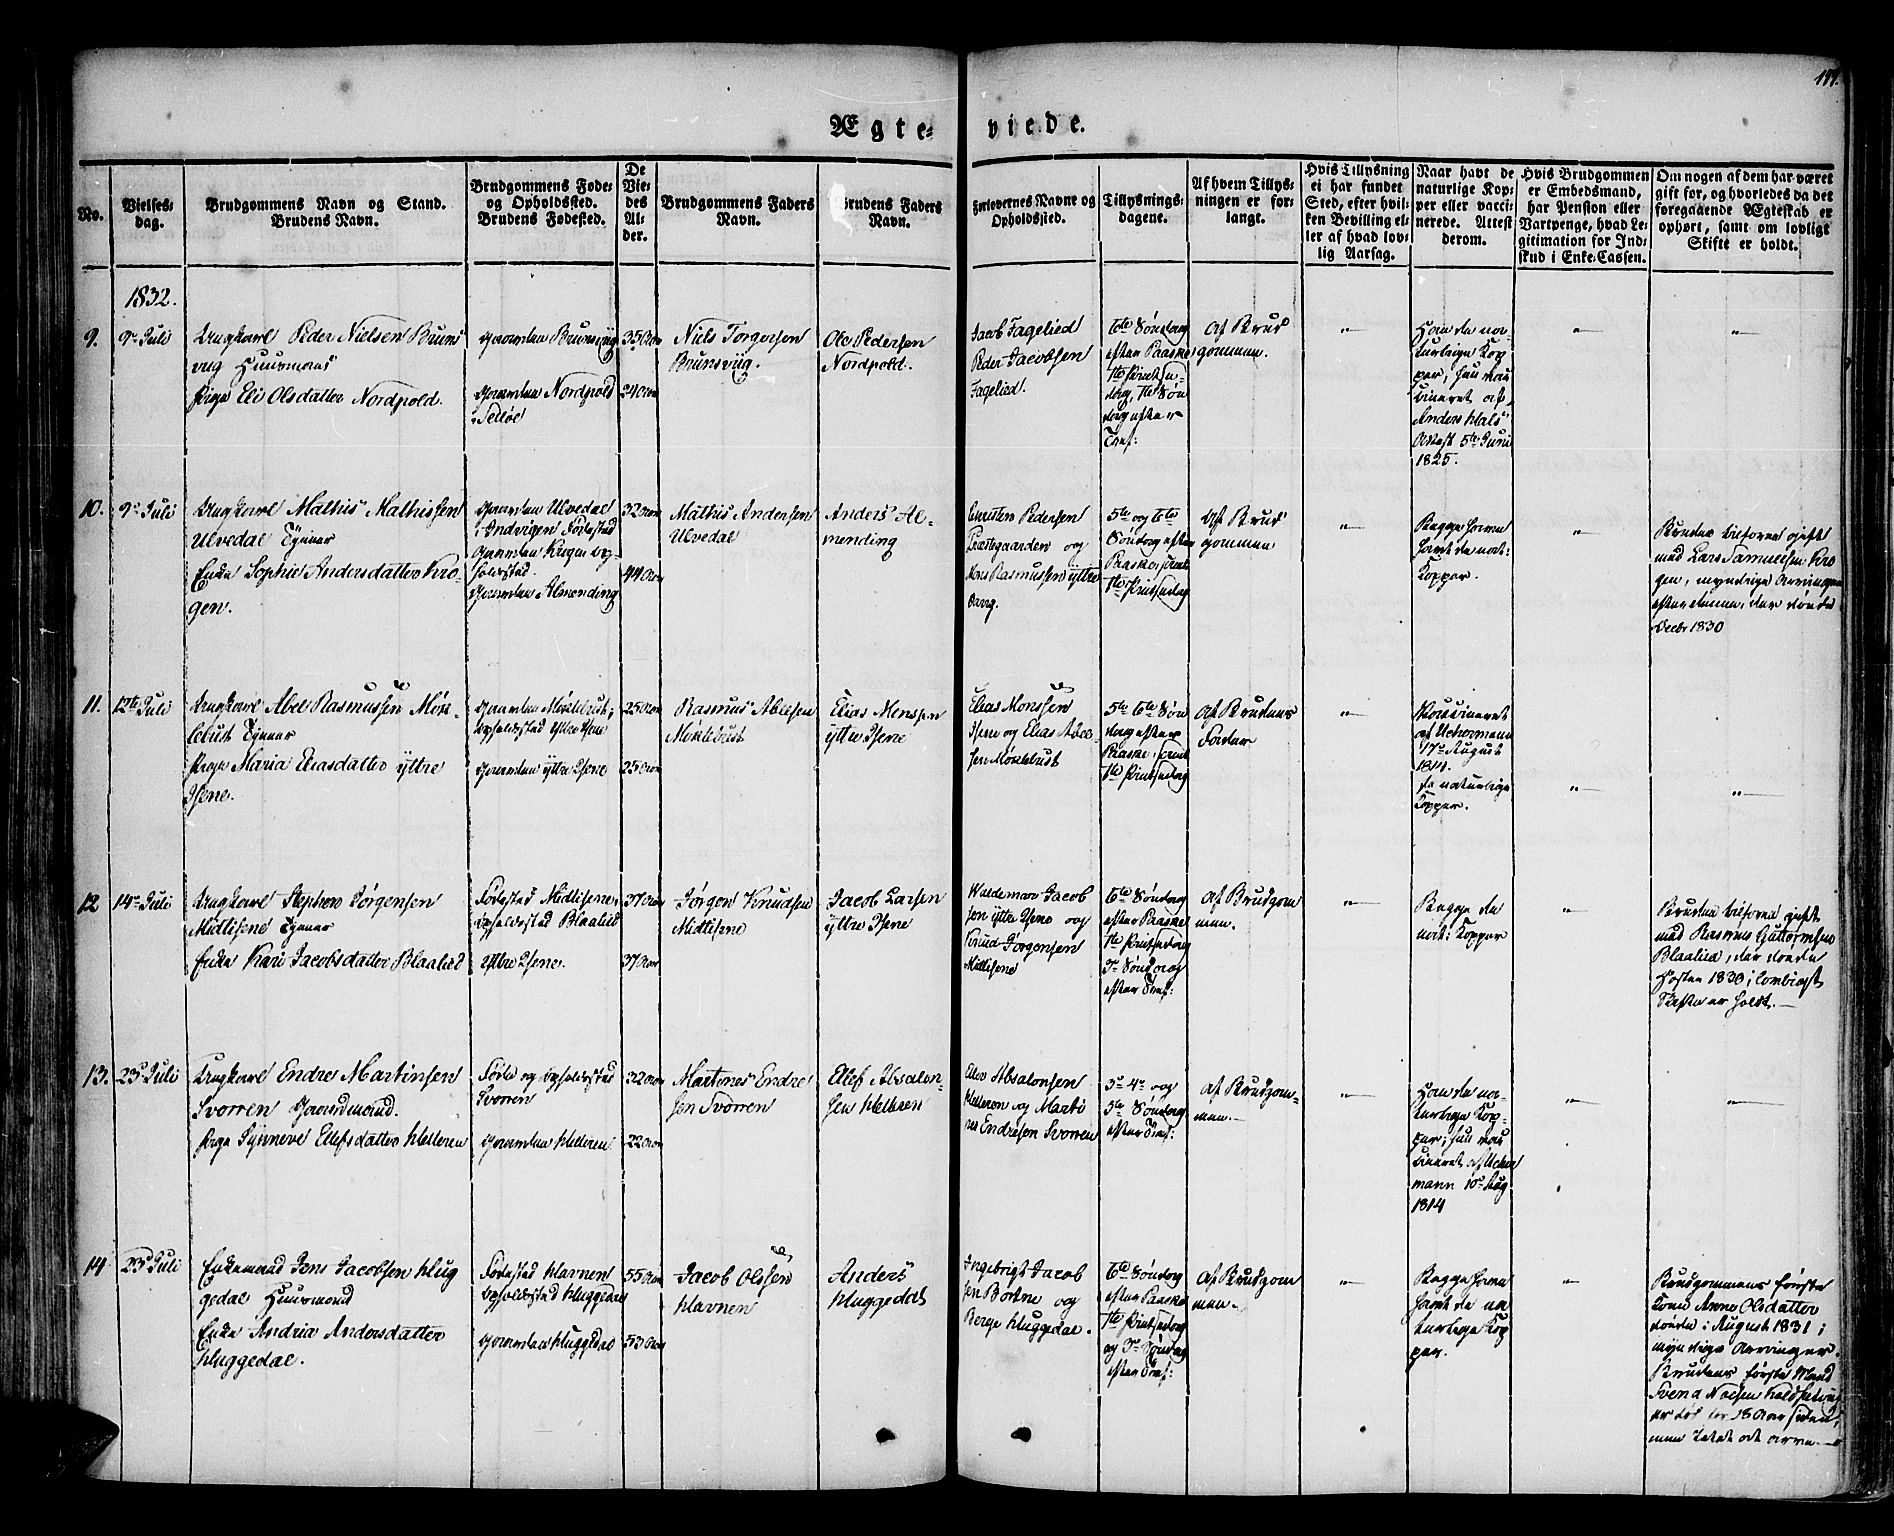 177.
Ægte-
viede.
No.
Vielses-
dag.
Brudgommens Navn og Stand.
Brudens Navn.
Brudgommens Føde-
og Opholdssted.
Brudens Fødested.
De
Vie-
des
Al-
der.
Brudgommens Faders
Navn.
Brudens Faders
Navn.
Forlovernes Navne og
Opholdssted.
Tillysnings-
dagene.
Af hvem Tillys-
ningen er for-
langt.
Hvis Tillysning
ei har fundet
Sted, efter hvil-
ken Bevilling el-
ler af hvad lov-
lig Aarsag.
Naar havt de
naturlige Kop-
per eller vacci-
nerede. Attest
derom.
Hvis Brudgommen
er Embedsmand,
har Pension eller
Vartpenge, hvad Le-
gitimation for Ind-
skud i Enke-Cassen.
Om nogen af dem har været
gift før, og hvorledes da det
foregaaende Ægteskab er
ophørt, samt om lovligt
Skifte er holdt.
1832.
9.
9de Juli
Ungkarl Peder Nielsen Bruns
viig Huusmand
Pige Eli Olsdatter Nordpold.
Gaarden Brunsviig
Gaarden Nordpold
i Selløe
35 Aar
24 Aar
Niels Torgersen
Brunsviig.
Ole Pedersen
Nordpold.
Jacob Fagelied
Peder Jacobsen
Fagelied.
6te Søndag
efter Paaske
1ste Pintse-
dag, 1ste Søn
dag efter
Tref:
Af Brud
gommen.
"
Ham de na-
turlige Kop
per, hun vac
cineret af
Anders Hals
Attest 5te Juni
1825.
"
"
10.
9de Juli
Ungkarl Mathis Mathissen
Ulvedal Tjener
Enke Sophie Andersdatter Kro-
gen.
Gaarden Ulvedal
i Indvigen Fødested
Gaarden Krogen op-
holdssted.
Gaarden Almending
32 Aar
44 Aar
Mathis Andersen
Ulvedal
Anders Al-
mending
Christen Pedersen
Præstegaarden og
Mons Rasmussen yttre
Aarg.
5te og 6te
Søndag efter
Paaske, samt
1ste Pintsedag
Af Brud
gommen
"
Begge have
havt de nat:
Kopper.
"
Bruden tilforn gift
med Lars Samuelsen Kro
gen, myndige Arvinger
efter denne, der døde
Decbr 1830
11.
12te Juli
Ungkarl Abel Rasmussen Møk-
lebust Tjener
Pige Maria Eliasdatter yttre
Hsene.
Gaarden Møklebust,
opholdssted Yttre Hsene
Gaarden yttre Hsene
25 Aar
25 Aar
Rasmus Abelsen
Møklebust
Elias Monssen
yttre Hsene
Elias Monssen
Hsene og Elias Abel-
sen Møklebust
5te 6te Søn
dag efter
Paaske, samt
1ste Pintsedag
Af Brudens
Fader
"
Vaccineret
af Uchermann
17de August
1811.
de naturlige
Kopper.
"
"
12
14de Juli
Ungkarl Stephen Jørgensen
Midthsene Tjener
Enke Kari Jacobsdatter Blaalied
Fødested Midthsene,
opholdssted Blaalied
Yttre Hsene.
37 Aar
37 Aar
Jørgen Knudsen
Midthsene
Jacob Larsen
yttre Hsene
Waldemar Jacob
sen yttre Hsene og
Knud Jørgensen
Midthsene
6te Søndag
efter Paaske
1ste Pintsedag
3de Søndag
efter Tref:
Af Brudgom
men.
"
Begge de
nat: Kopper
"
Bruden tilforn gift
med Rasmus Guttormsen
Blaalied, der døde
Høsten 1830; lovligt
Skifte er holdt.
13.
23de Juli
Ungkarl Endre Martinsen
Svorren Gaardmand.
Pige Synneve Ellefsdatter Helleren
Føde og opholdssted
Svorren
Gaarden Helleren
32 Aar
22 Aar
Martines Endre
sen Svorren
Ellef Absalon-
sen Helleren
Ellev Absalonsen
Helleren og Marti
nes Endresen Svorren
3de 4de og
5te Søndag
efter Tref:
Af Brudgom-
men.
"
Ham de na-
turlige Kop-
per; hun vac
cineret af Ucher
mann 10de Aug
1814
"
"
14
23de Juli
Enkemand Jens Jacobsen Hug
gedal Huusmand
Enke Andria Andersdatter
Huggedal.
Fødested Havnen
opholdssted Huggedal
Gaarden Huggedal
55 Aar
53 Aar
Jacob Olssen
Havnen
Anders
Huggedal
Ingebrigt Jacob
sen Bortne og
Berge Huggedal.
6te Søndag
efter Paaske
1ste Pintsedag
og 3de Søndag
efter Tref:
Af Brudgom
men.
"
Begge have
havt de na
turlige Kop
per.
"
Brudgommens første
Kone Anne Olsdatter
døde i August 1831;
myndige Arvinger.
Brudens første Mand
Svend Nielsen
er død for 18 Aar siden,
men intet at arve.